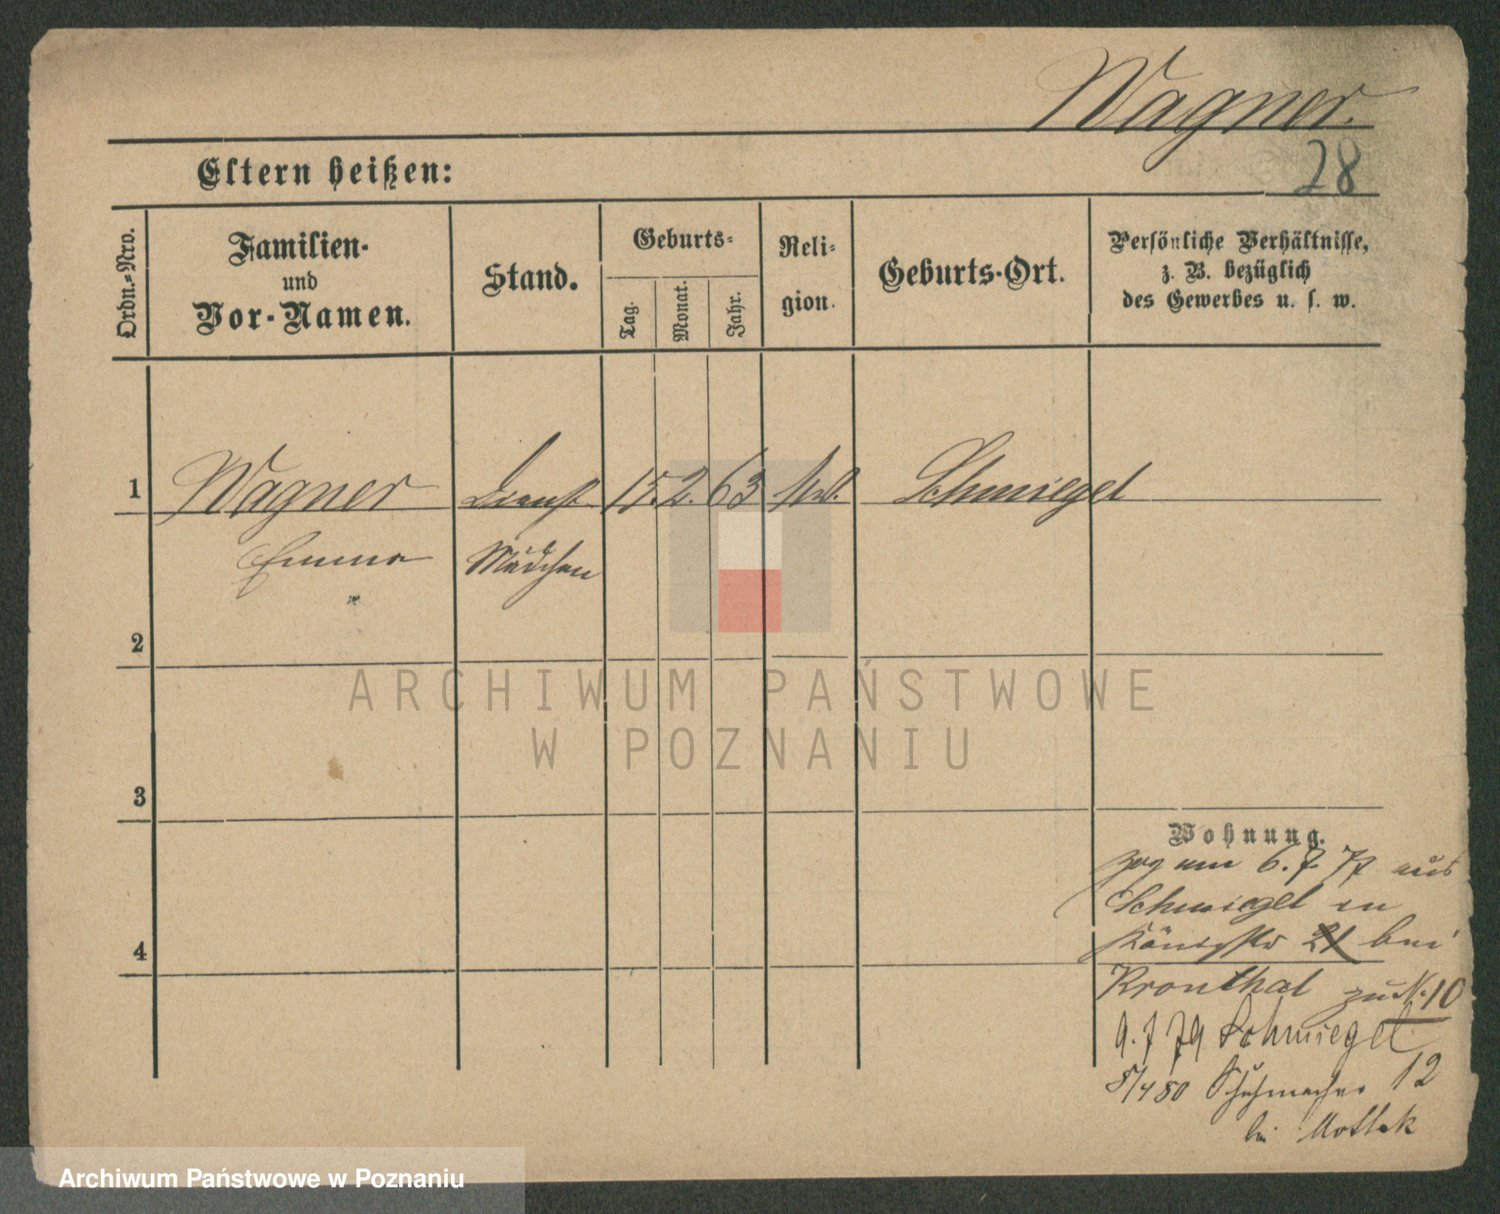 Wagner.
28
Eltern heißen:
Ordn.-Nro.
Familien-
und
Vor-Namen.
Stand.
Geburts-
Tag.
Monat.
Jahr.
Reli-
gion.
Geburts-Ort.
Persönliche Verhältnisse,
z. B. bezüglich
des Gewerbes u. s. w.
1 Wagner Dienst 15. 2. 63 Schmiegel
Emma Mädchen
2
3
4
ARCHIWUM PAŃSTWOWE
W POZNANIU
Wohnung.
zog am 6. 7. 77 aus
Schmiegel in
Königstr 21 bei
Kronthal zu N. 10
9. 7 79 Schmiegel
8/4 80 Schuhmacher 12
bei Mottek
Archiwum Państwowe w Poznaniu